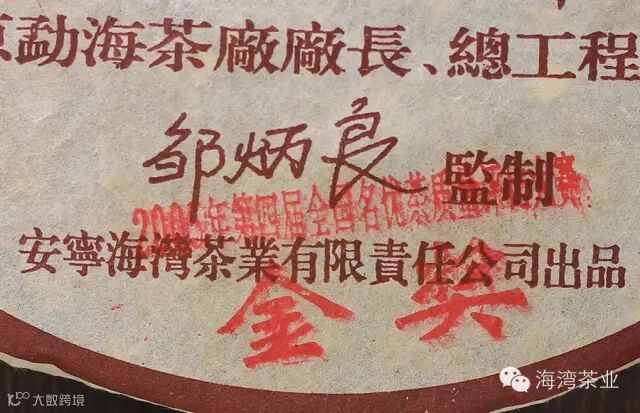 原勐海茶廠廠長、總工程
邹炳良 監制
200 年第四届全国名优茶质量
安寧海灣茶業有限責任公司出品
金奖
海湾茶业
大数跨境